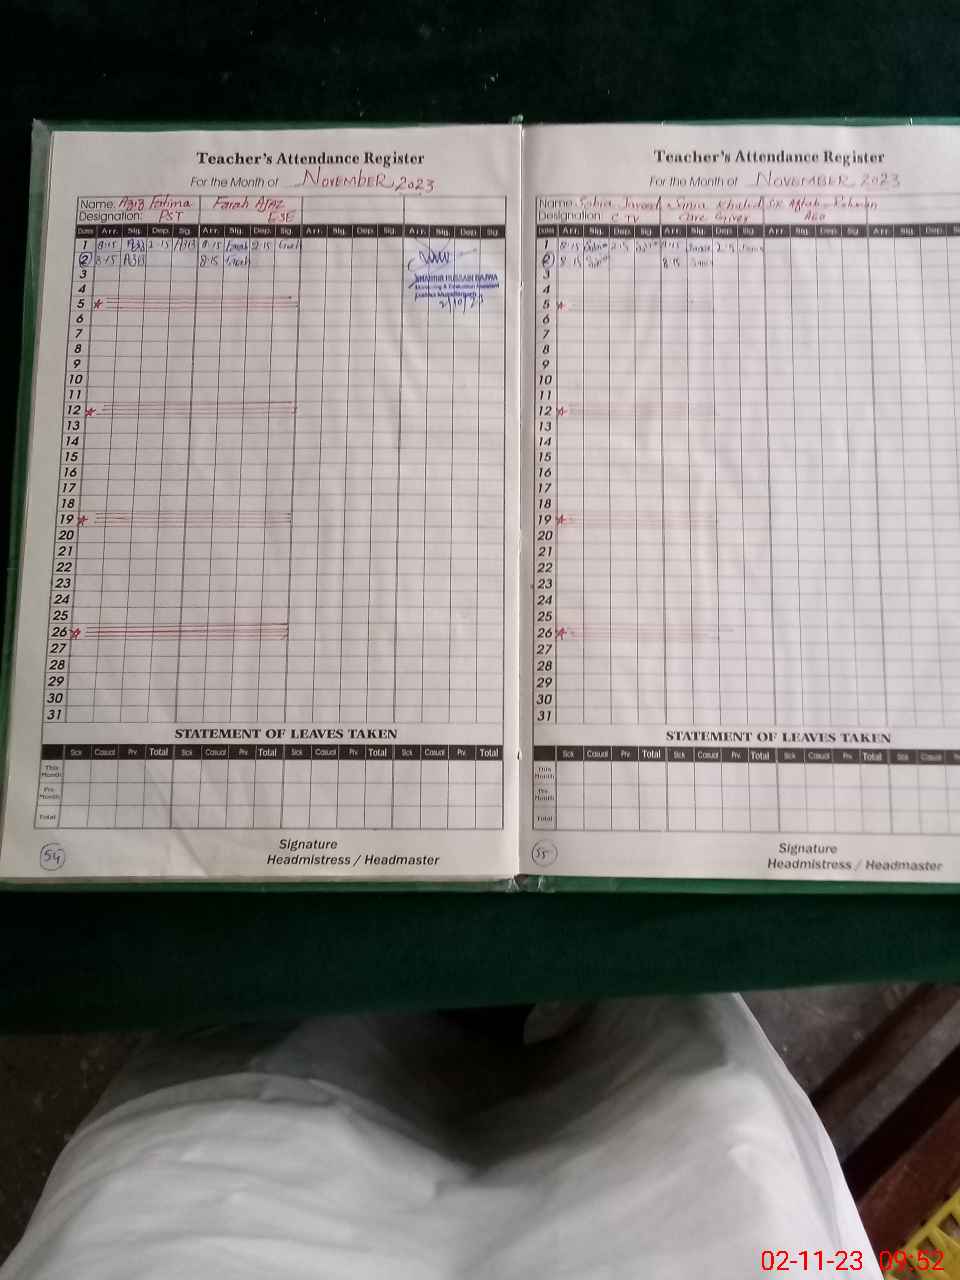 Teacher's Attendance Register
For the Month of NOVEMBER 2023
Name: Aziz Fatima Farah AJAZ
Designation: PST ESE
Date Arr. Sig. Dep. Sig. Arr. Sig. Dep. Sig. Arr. Sig. Dep. Sig. Arr. Sig. Dep. Sig
1 8·15 2·15 8·15 Farah 2·15
2 8·15 8·15
3
4
5
6
7
8
9
10
11
12
13
14
15
16
17
18
19
20
21
22
23
24
25
26
27
28
29
30
31
HUSSAIN BAJWA
Monitoring & Evaluation Assistant
2/10/23
STATEMENT OF LEAVES TAKEN
Sick Casual Prv. Total Sick Casual Prv. Total Sick Casual Prv. Total Sick Casual Prv. Total
This Month
Pre. Month
Total
Signature
Headmistress / Headmaster
54
Teacher's Attendance Register
For the Month of NOVEMBER 2023
Name: Sobia Javed Sonia Khalid Sir Aftab-Rehman
Designation: C TV Care Giver AEO
Date Arr. Sig. Dep. Sig. Arr. Sig. Dep. Sig Arr. Sig. Dep. Sig. Arr. Sig. Dep.
1 8·15 2·15 8·15 2·15
2 8·15 8·15
3
4
5
6
7
8
9
10
11
12
13
14
15
16
17
18
19
20
21
22
23
24
25
26
27
28
29
30
31
STATEMENT OF LEAVES TAKEN
Sick Casual Prv. Total Sick Casual Prv. Total Sick Casual Prv. Total Sick Casual
This Month
Pre. Month
Total
Signature
Headmistress / Headmaster
55
02-11-23 09:52